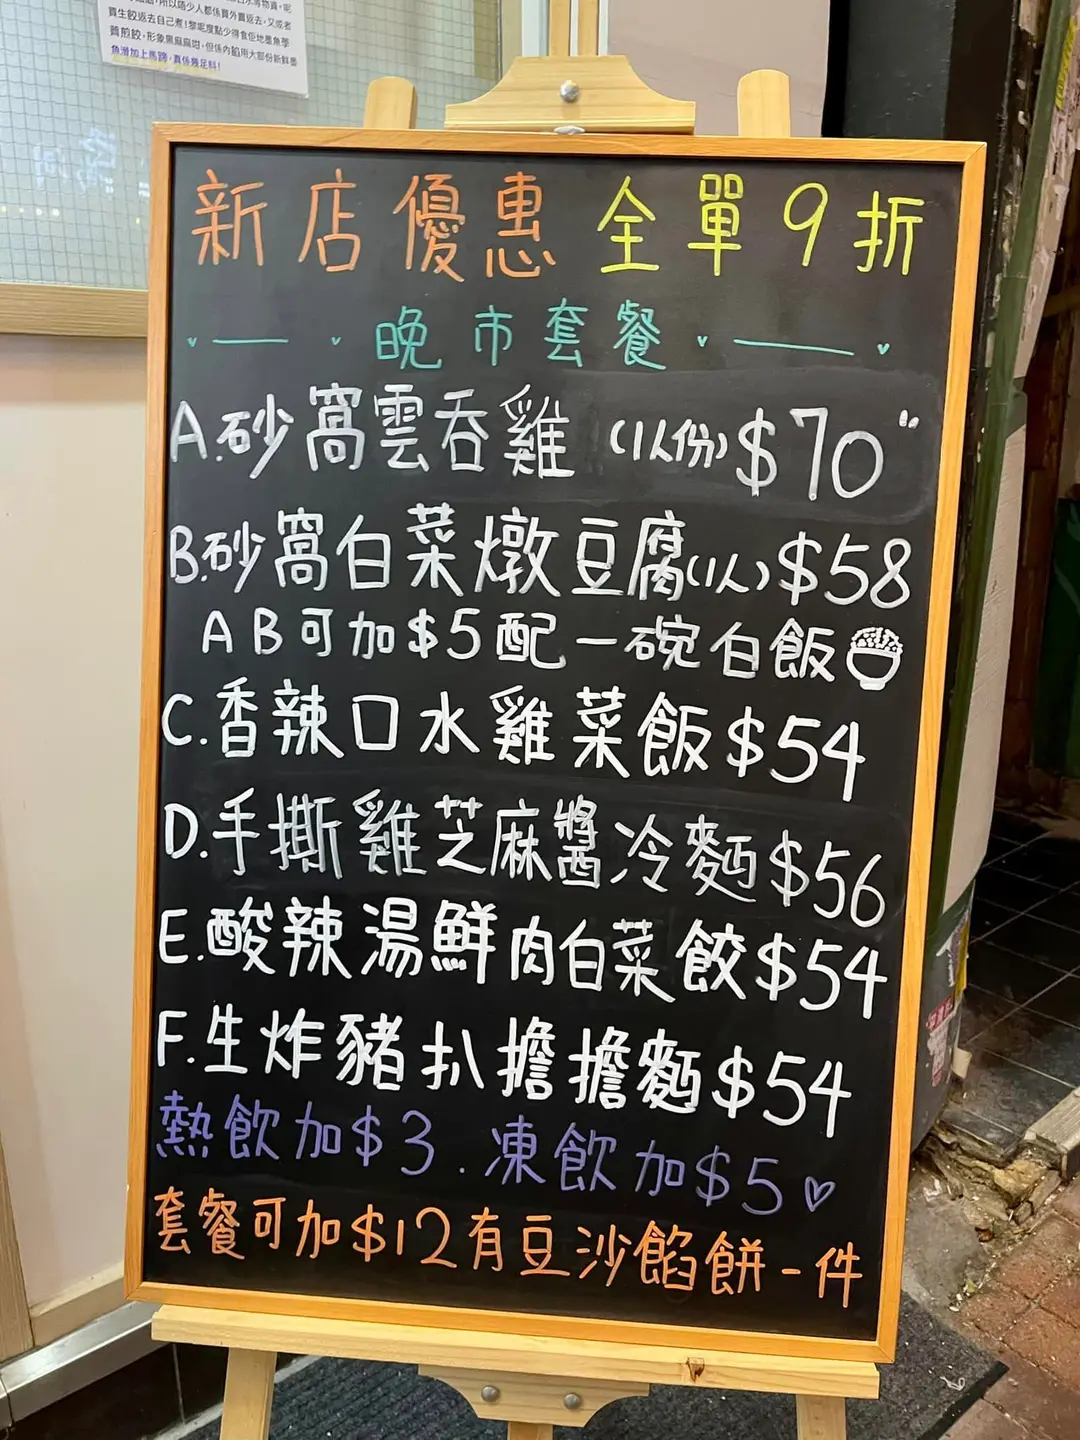 買生餃返去自己煮!黎呢度點少得食佢地墨魚學
薺煎餃,形象黑麻麻咁,但係內餡用大部份新鮮墨
魚滑加上馬蹄,真係幾足料!
新店優惠 全單9折
晚市套餐
A.砂窩雲吞雞 (1人份)$70"
B.砂窩白菜燉豆腐(1人)$58
AB可加$5配一碗白飯
C.香辣口水雞菜飯$54
D.手撕雞芝麻醬冷麵$56
E.酸辣湯鮮肉白菜餃$54
F.生炸豬扒擔擔麵$54
熱飲加$3.凍飲加$5
套餐可加$12有豆沙餡餅一件